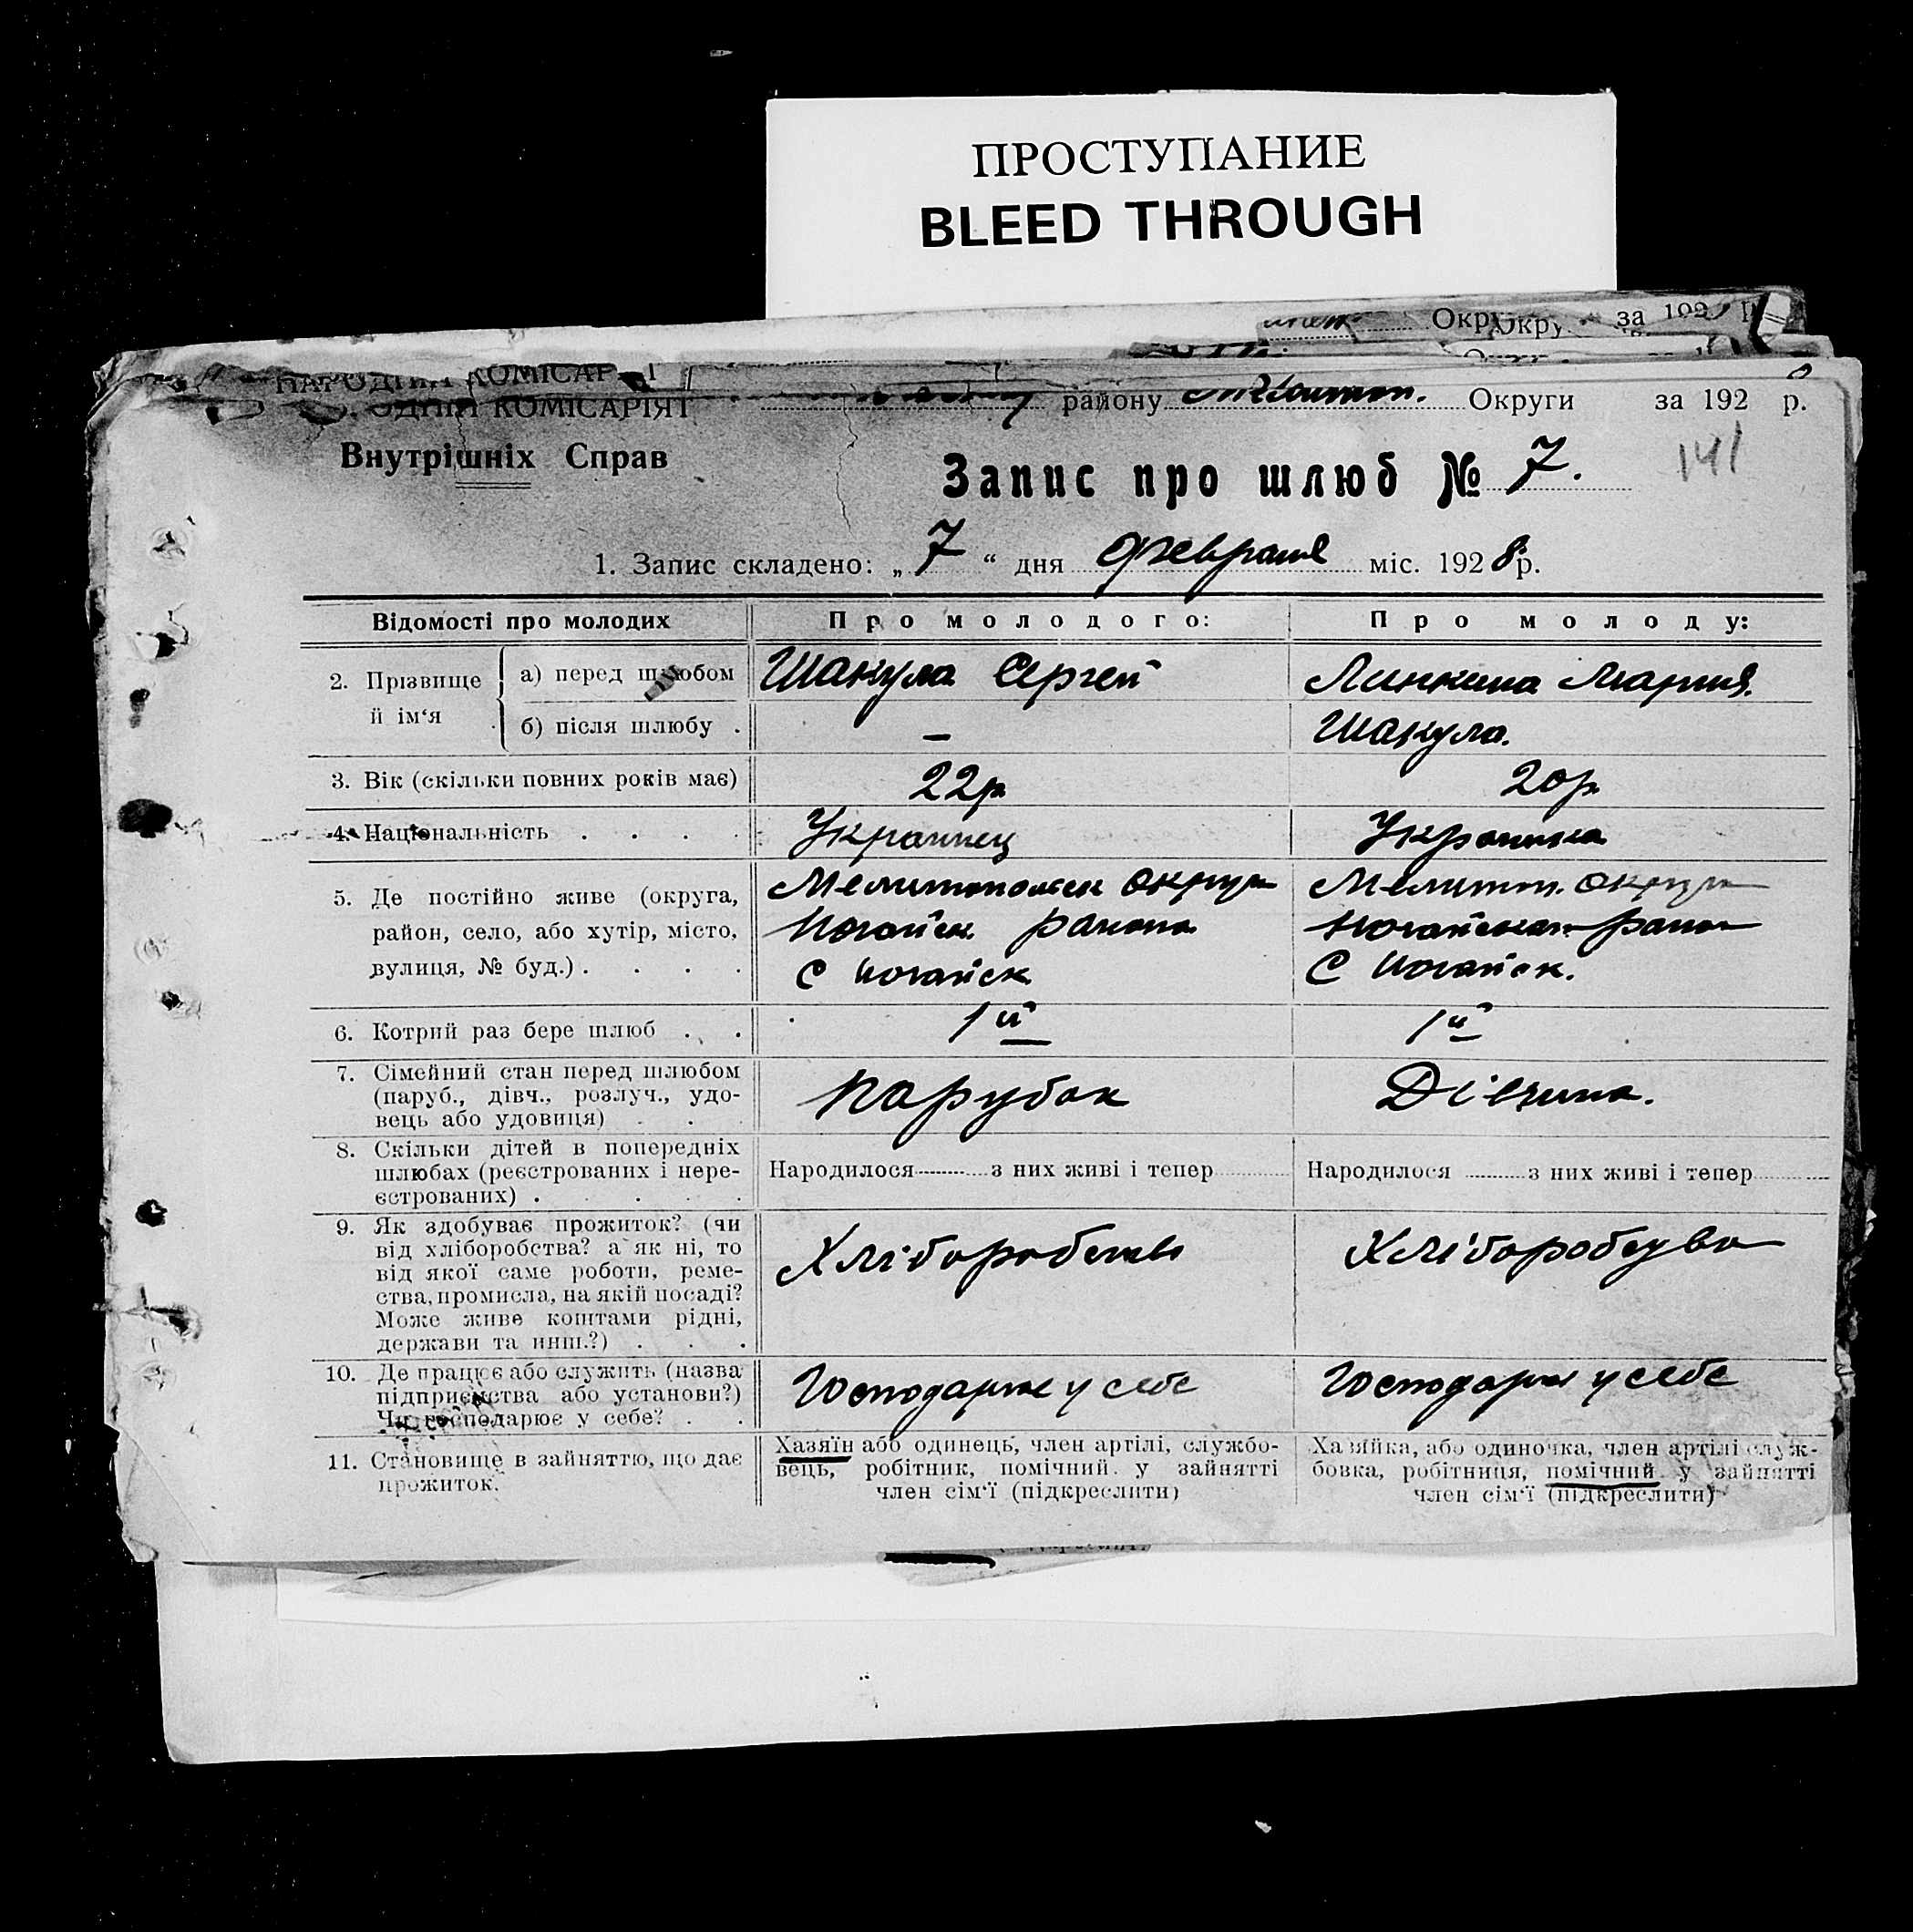 ПРОСТУПАНИЕ
BLEED THROUGH
Округ за 192
НАРОДНІЙ КОМІСАР
ОДНІЙ КОМІСАРІЯТ
району Мелитоп. Округи за 192 р.
Внутрішніх Справ
141
Запис про шлюб № 7.
1. Запис складено: „ 7 “ дня февраля міс. 1928 р.
Відомості про молодих
Про молодого:
Про молоду:
2. Прізвище й ім‘я
а) перед шлюбом
Шакула Сергей
Линкина Мария.
б) після шлюбу .
—
Шакула.
3. Вік (скільки повних років має)
22р
20р
4. Національність . . . .
Украинец
Украинка
5. Де постійно живе (округа,
район, село, або хутір, місто,
вулиця, № буд.) . . . .
Мелитопольск округи
Ногайск района
С Ногайск
Мелитоп. округи
Ногайского район
С Ногайск.
6. Котрий раз бере шлюб . .
1й
1й
7. Сімейний стан перед шлюбом
(паруб., дівч., розлуч., удо-
вець або удовиця) . .
Парубок
Дівчина.
8. Скільки дітей в попередніх
шлюбах (реєстрованих і нере-
єстрованих) . . . . .
Народилося з них живі і тепер
Народилося з них живі і тепер
9. Як здобуває прожиток? (чи
від хліборобства? а як ні, то
від якої саме роботи, реме-
ства, промисла, на якій посаді?
Може живе коштами рідні,
держави та инш.?) . . .
Хліборобство
Хліборобство
10. Де працює або служить (назва
підприємства або установи?)
Чи господарює у себе? . .
Господарює у себе
Господарює у себе
11. Становище в зайняттю, що дає
прожиток.
Хазяїн або одинець, член артілі, службо-
вець, робітник, помічний у зайнятті
член сім‘ї (підкреслити)
Хазяйка, або одиночка, член артілі служ-
бовка, робітниця, помічний у зайнятті
член сім‘ї (підкреслити)